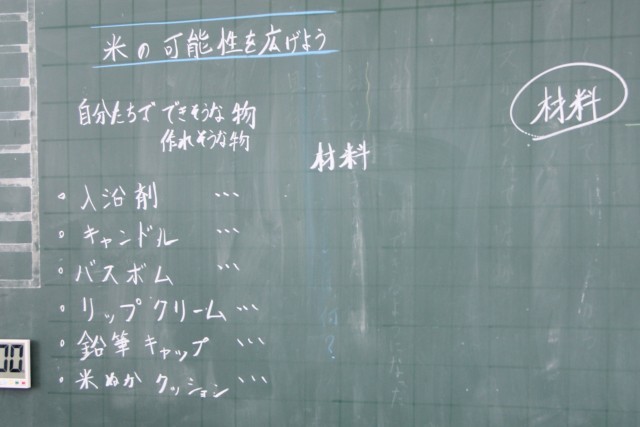 米の可能性を広げよう
材料
自分たちで できそうな物
作れそうな物
材料
。入浴剤 ...
。キャンドル ...
。バスボム ...
。リップクリーム ...
。鉛筆キャップ ...
。米ぬか クッション ...
00